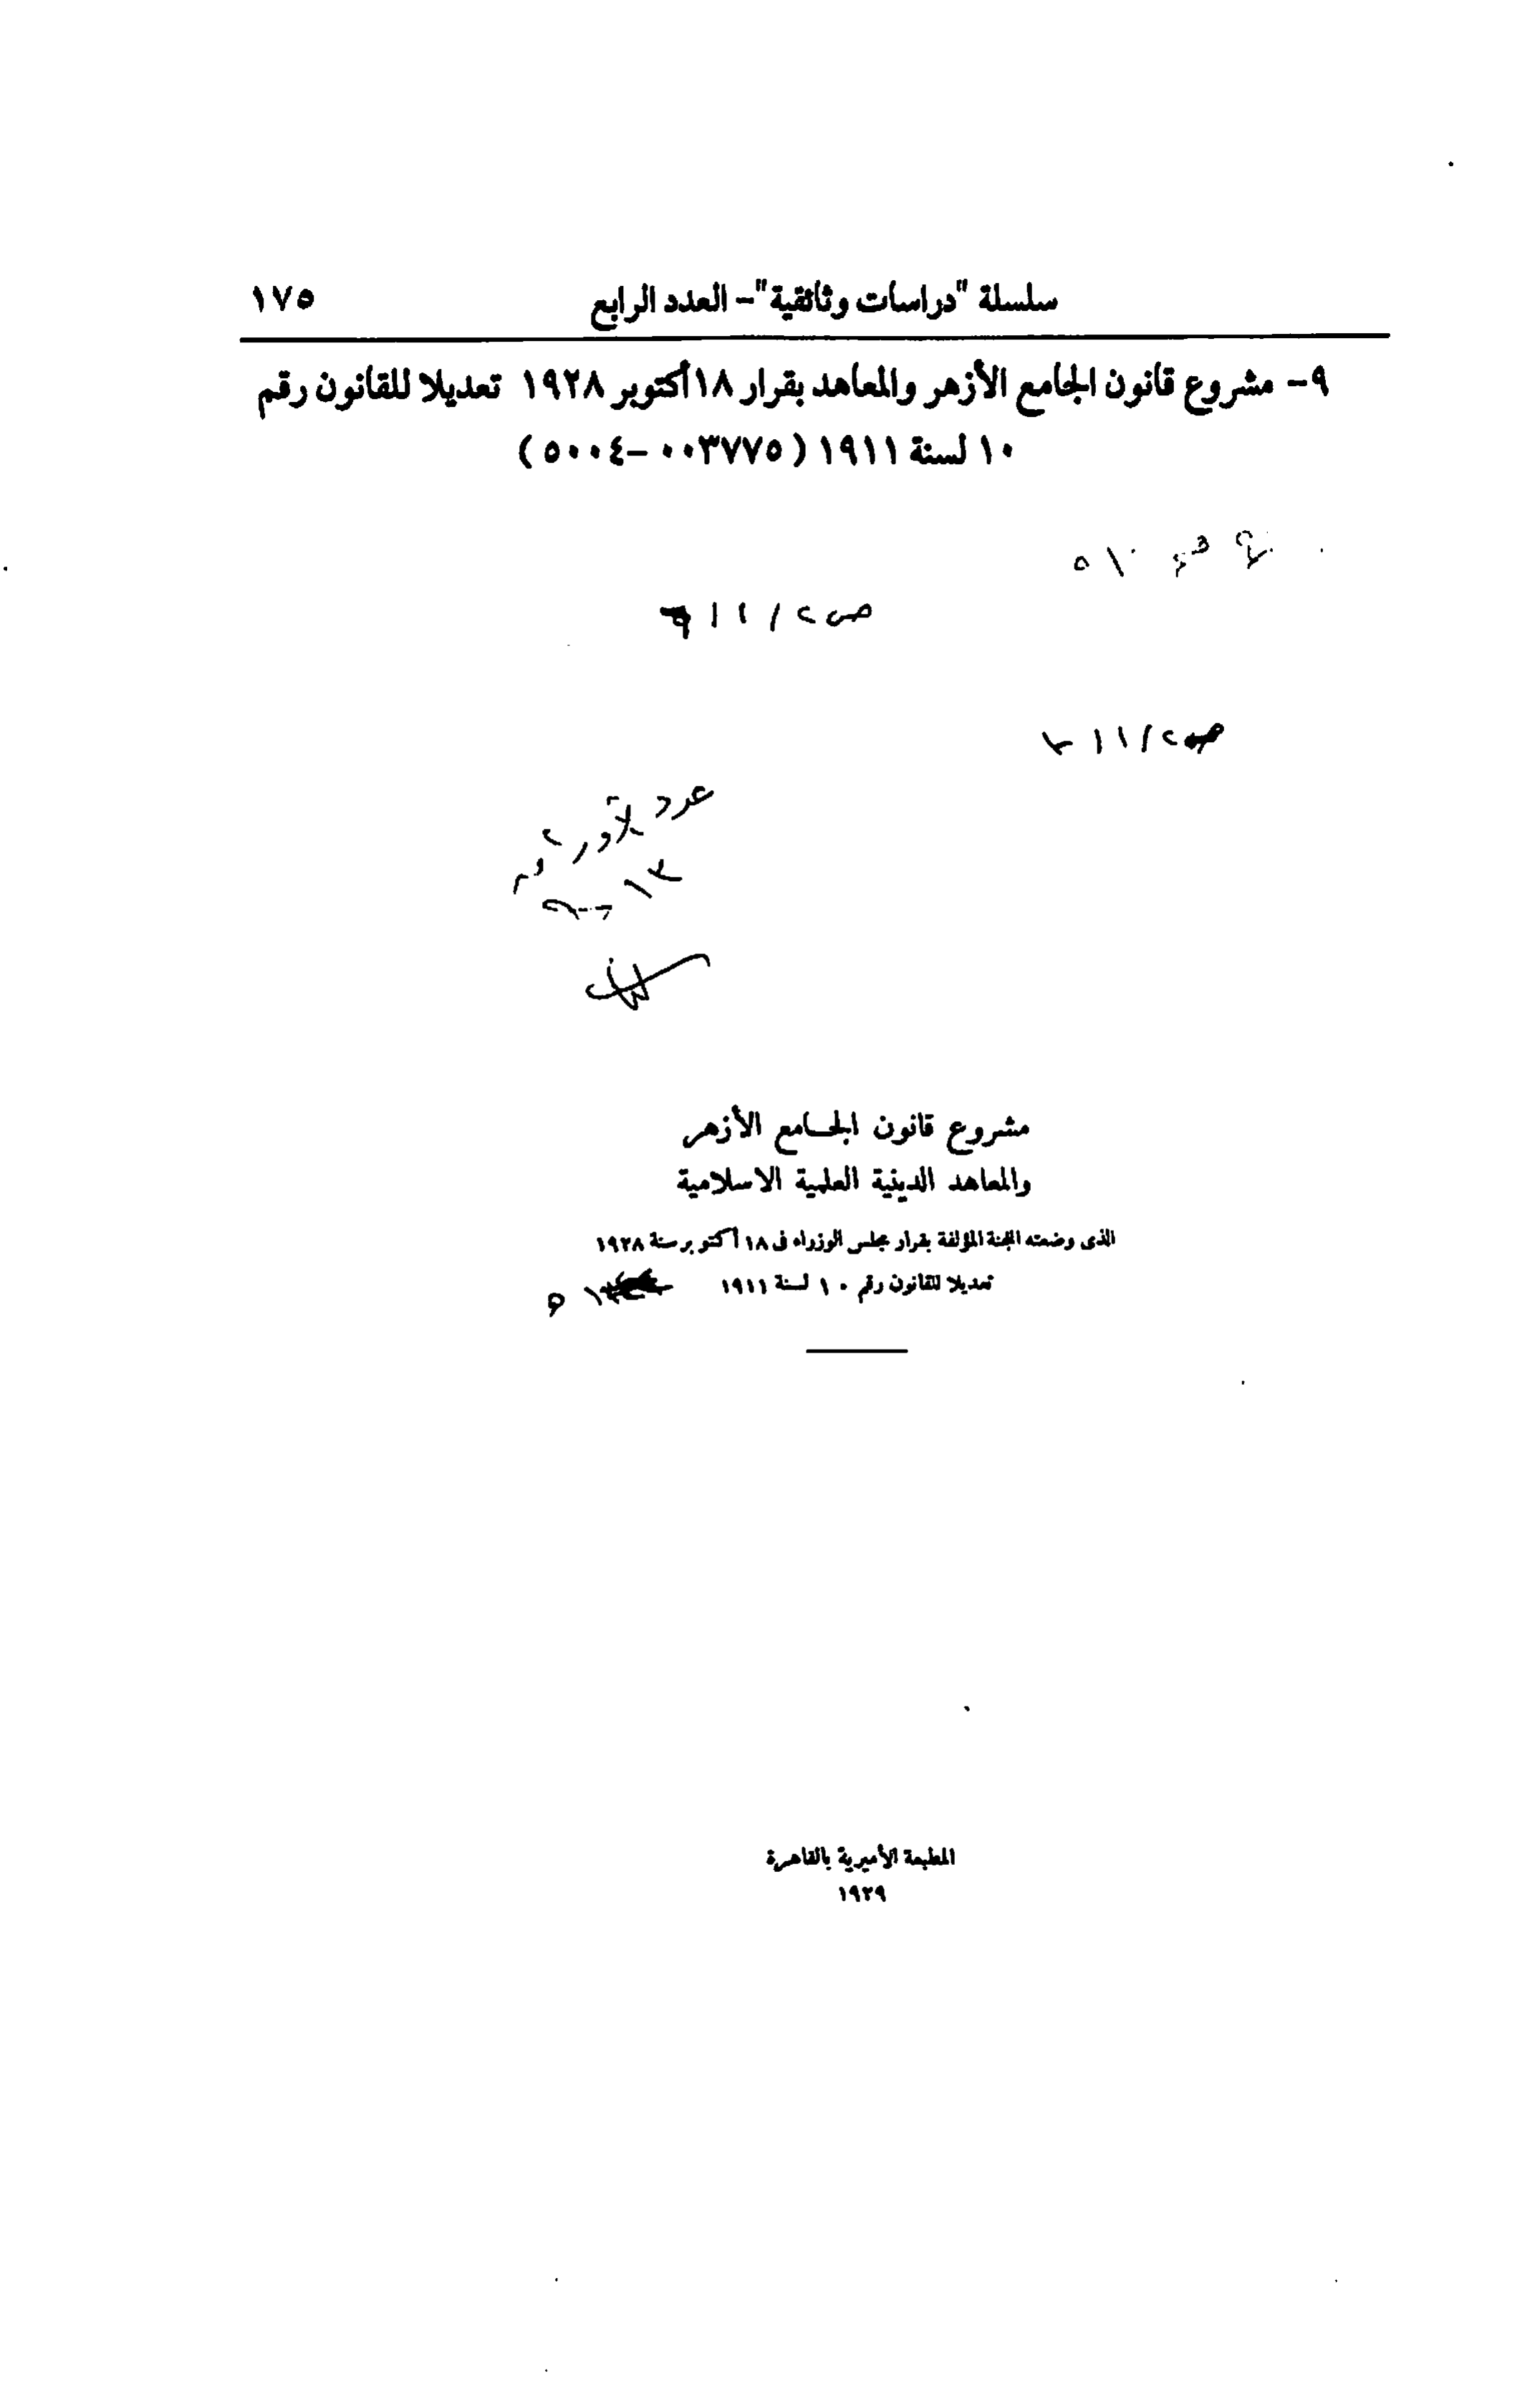 سلسلة "دراسات وثائقية" – العدد الرابع ١٧٥
٩– مشروع قانون الجامع الأزهر والمعاهد بقرار ١٨ أكتوبر ١٩٢٨ تعديلا للقانون رقم
١٠ لسنة ١٩١١ ( ٠٠٣٧٧٥–٥٠٠٤ )
عدد
مشروع قانون الجامع الأزهر
والمعاهد الدينية العلمية الاسلامية
الذى وضعته اللجنة المؤلفة بقرار مجلس الوزراء فى ١٨ أكتوبر سنة ١٩٢٨
تعديلا للقانون رقم ١٠ لسنة ١٩١١
المطبعة الأميرية بالقاهرة
١٩٢٩